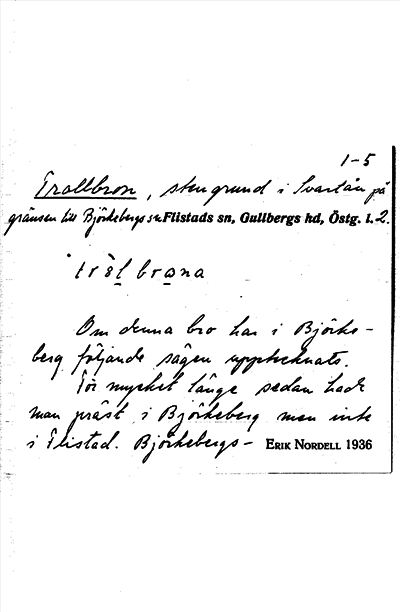 1-5
Trollbron, stengrund i Svartån på
gränsen till Björkebergs sn. Flistads sn, Gullbergs hd, Östg. l. 2.
Om denna bro har i Björke-
berg följande sägen upptecknats.
För mycket länge sedan hade
man präst i Björkeberg men inte
i Flistad. Björkebergs- ERIK NORDELL 1936